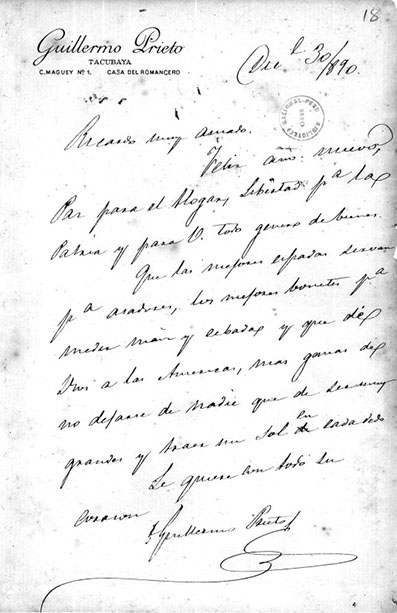 18
Guillermo Prieto
TACUBAYA
C. MAGUEY Nº 1. CASA DEL ROMANCERO
Dic e 30/890.
BIBLIOTECA NACIONAL-PERU
Ricardo muy amado.
Feliz año nuevo,
Paz para el Hogar, Libertad pa la
Patria y para V. todo genero de bienes.
Que las mejores espadas sirvan
pa asadores, los mejores bonetes pa
medir maiz y cebada y que dé
Dios a las Americas, mas ganas de
no dejarse de nadie que de ser muy
grandes y traer un sol en cada dedo
Le quiere con todo su
corazon
Guillermo Prieto